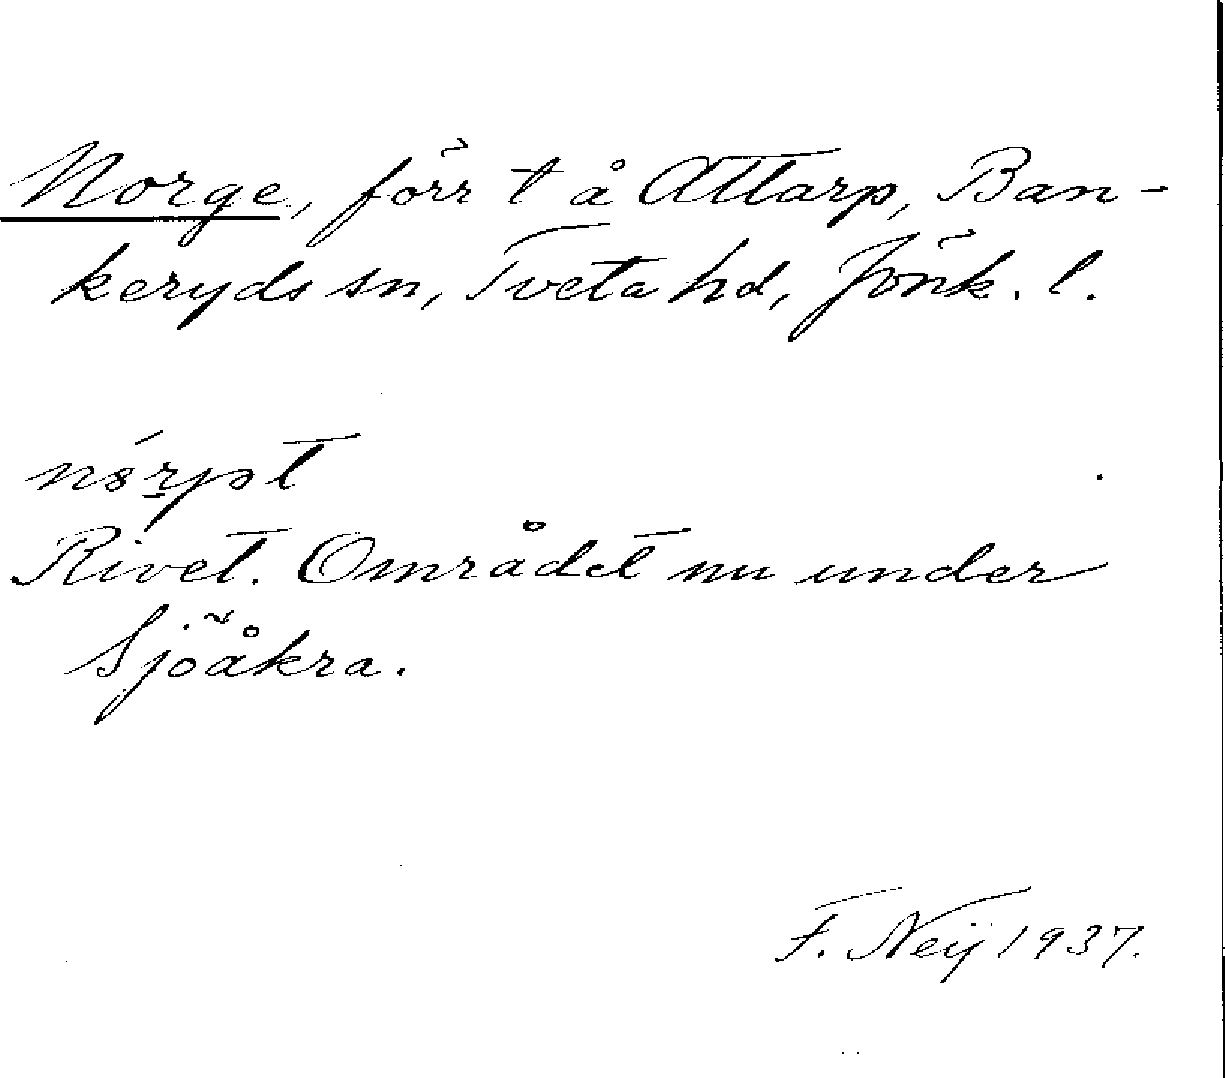 Norge, förr t å Attarp, Ban-
keryds sn, Tveta hd, Jönk. l.
Rivet. Området nu under
Sjöåkra.
F. Neij 1937.